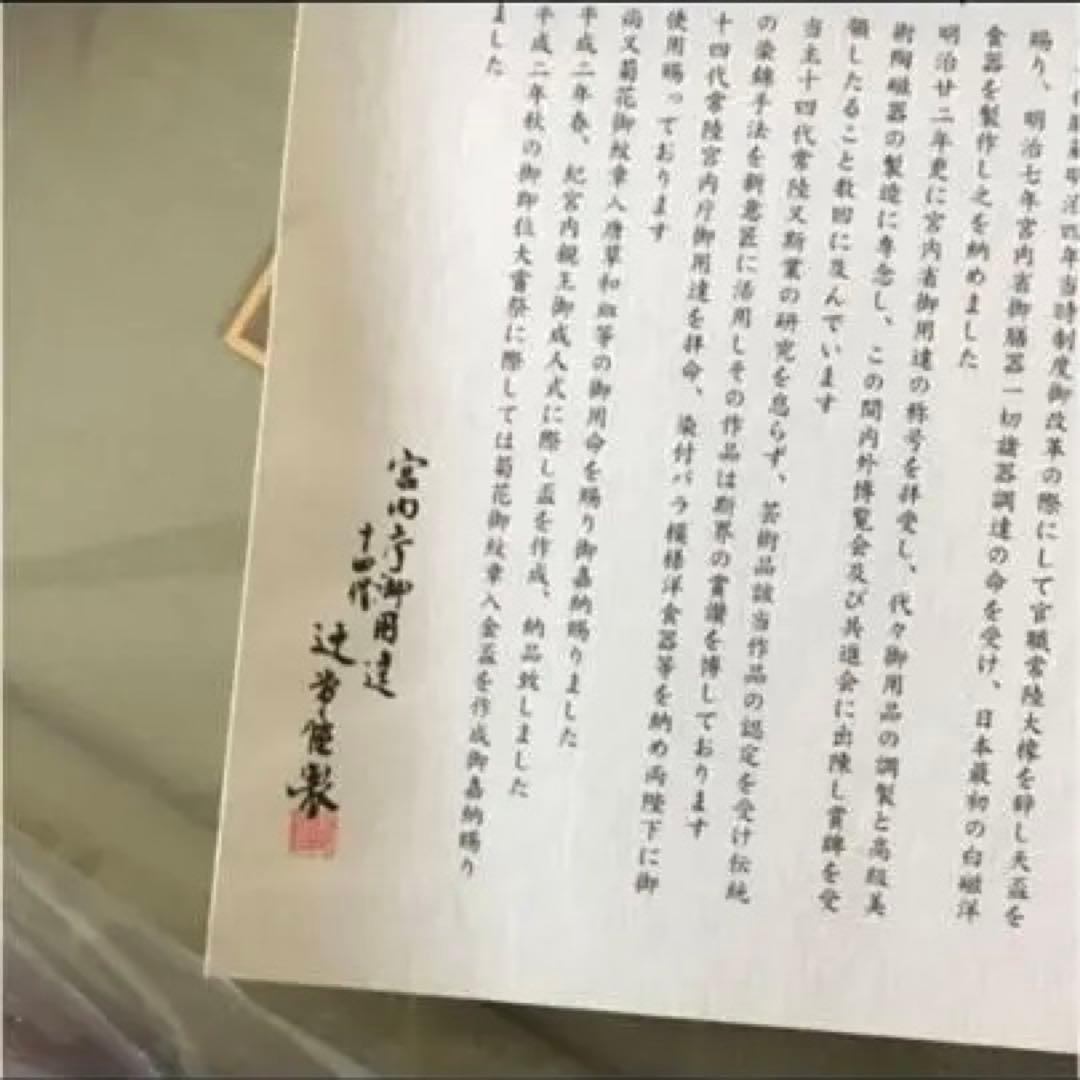 明治四年当時制度御改革の際にして官職常陸大掾を辞し天盃を
賜り、明治七年宮内省御膳器一切諸器調達の命を受け、日本最初の白磁洋
食器を製作し之を納めました
明治廿二年更に宮内省御用達の称号を拝受し、代々御用品の調製と高級美
術陶磁器の製造に専念し、この間内外博覧会及び共進会に出陳し賞牌を受
領したること数回に及んでいます
当主十四代常陸又斯業の研究を怠らず、芸術品該当作品の認定を受け伝統
の染錦手法を新意匠に活用しその作品は斯界の賞讃を博しております
十四代常陸宮内庁御用達を拝命、染付バラ模様洋食器等を納め両陛下に御
使用賜っております
尚又菊花御紋章入唐草和皿等の御用命を賜り御嘉納賜りました
平成二年春、紀宮内親王御成人式に際し盃を作成、納品致しました
平成二年秋の御即位大嘗祭に際しては菊花御紋章入金盃を作成御嘉納賜り
ました
宮内庁御用達
十四代
辻常陸製